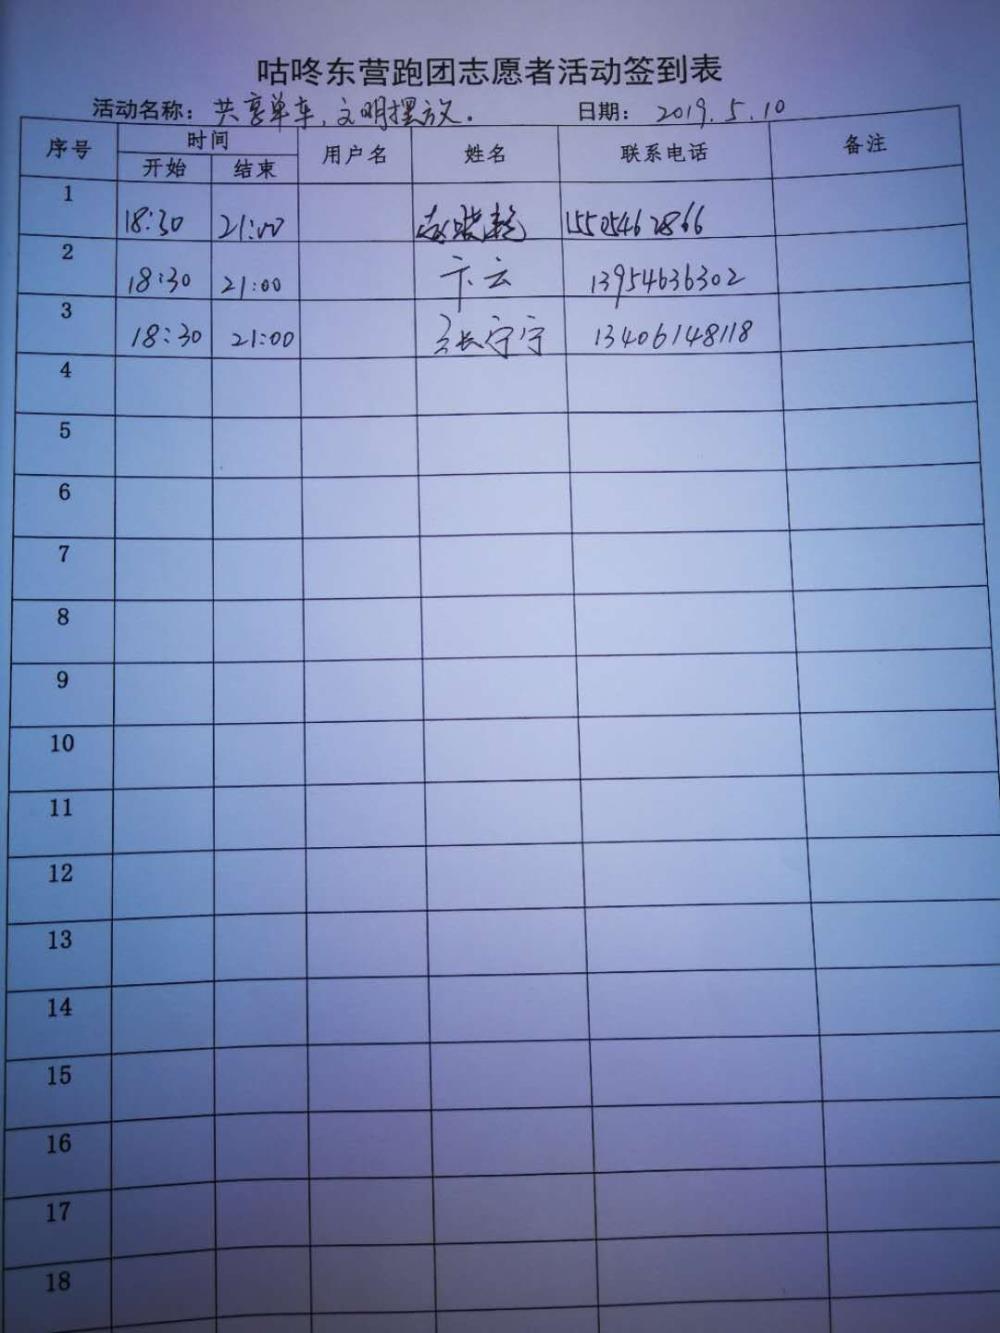 咕咚东营跑团志愿者活动签到表
活动名称：共享单车，文明摆放。 日期：2019.5.10
序号 时间 用户名 姓名 联系电话 备注
开始 结束
1 18:30 21:00 15505462866
2 18:30 21:00 卞云 13954636302
3 18:30 21:00 张宁宁 13406148118
4
5
6
7
8
9
10
11
12
13
14
15
16
17
18